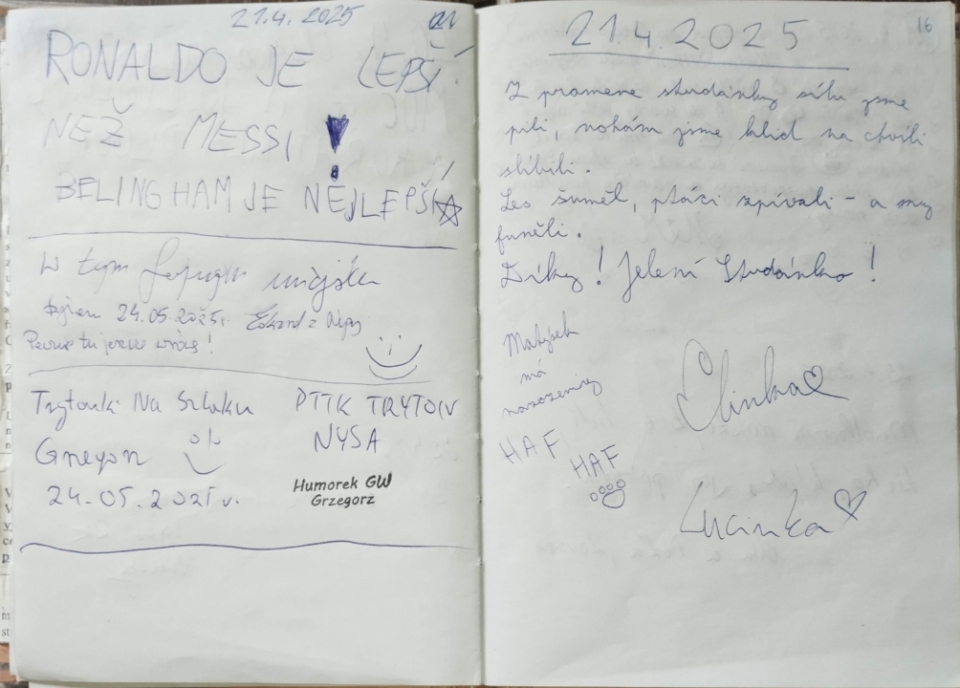 21.4.2025
RONALDO JE LEPŠÍ
NEŽ MESSI!
BELINGHAM JE NEJLEPŠÍ
W tym
24.05.2025r. Edward z Nysy
Pewnie tu jeszcze wrócę!
Trytonki Na Szlaku PTTK TRYTON
NYSA
Gregor
24.05.2025r.
Humorek GW
Grzegorz
16
21.4.2025
Z pramene studánky sílu jsme
pili, nohám jsme klid na chvíli
slíbili.
Les šuměl, ptáci zpívali - a my
funěli.
Díky! Jelení Studánko!
Matýsek
má
narozeniny
HAF
HAF
Elinka
Lucinka